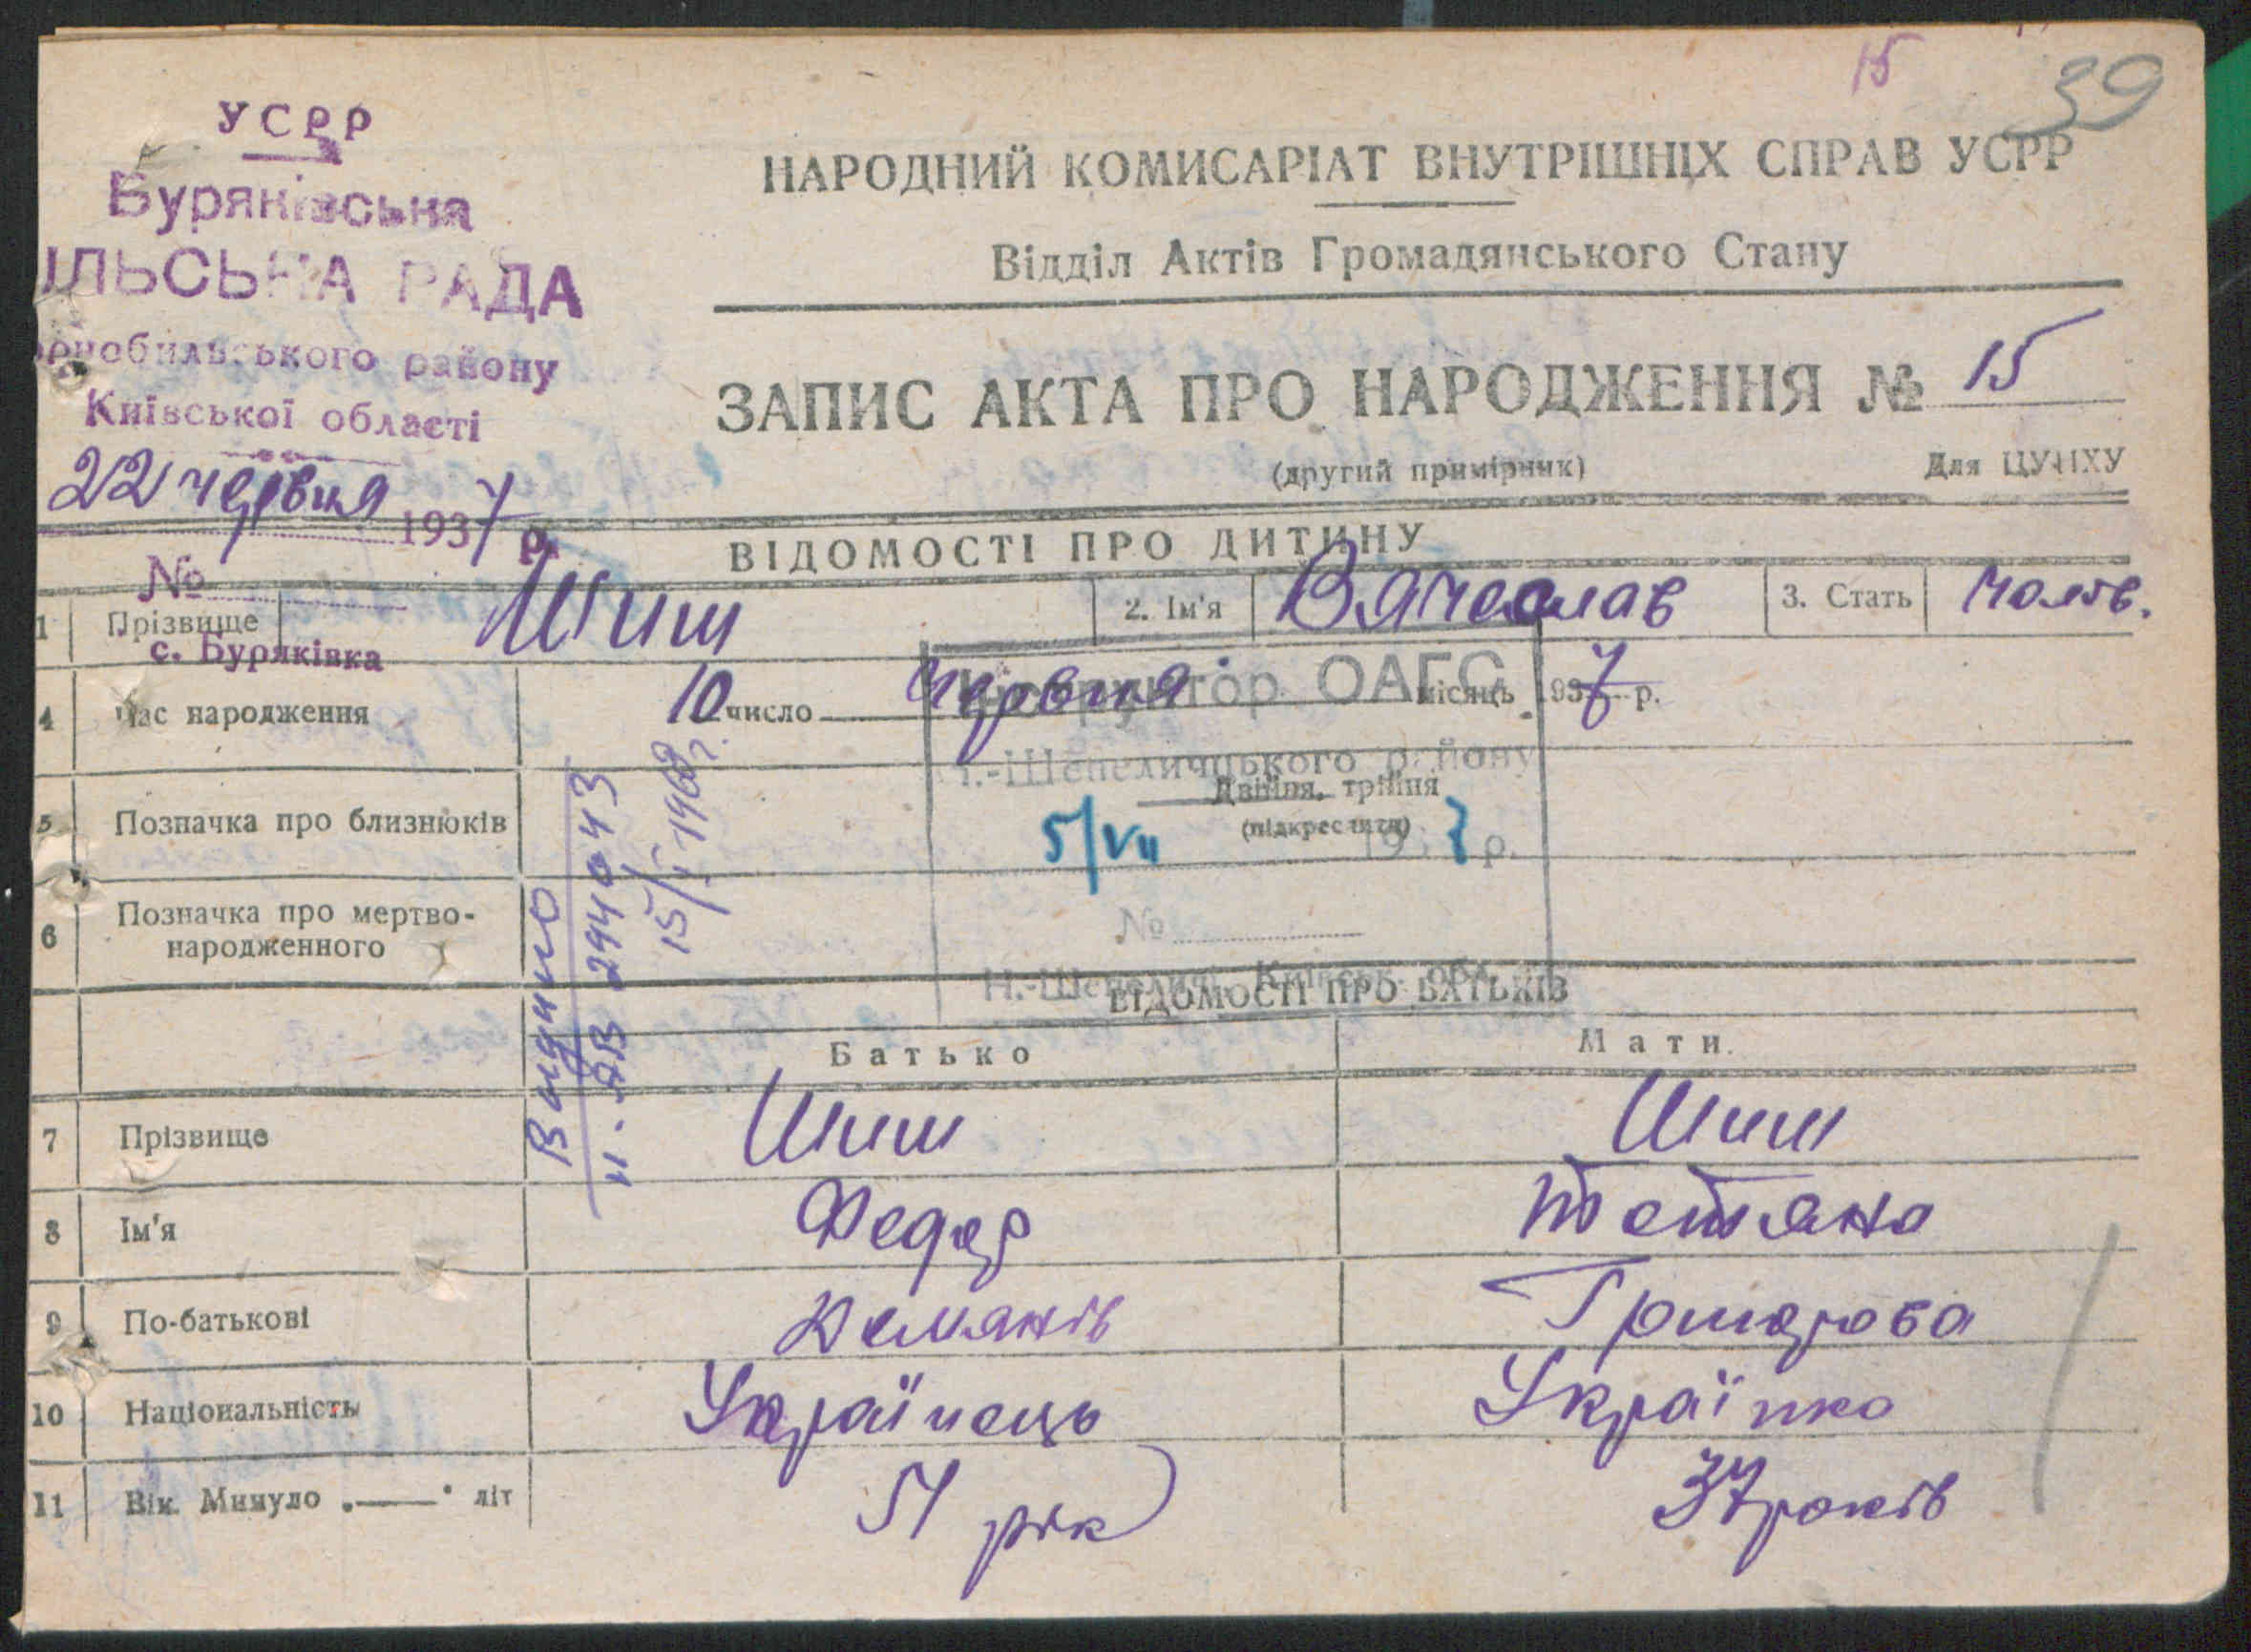 15
39
УСРР
Буряківська
ІЛЬСЬКА РАДА
рнобильського району
Київської області
22 червня 1937 р.
№
с. Буряківка
НАРОДНИЙ КОМИСАРІАТ ВНУТРІШНІХ СПРАВ УСРР
Відділ Актів Громадянського Стану
ЗАПИС АКТА ПРО НАРОДЖЕННЯ № 15
(другий примірник)
Для ЦУНХУ
ВІДОМОСТІ ПРО ДИТИНУ
1 Прізвище Шиш 2. Ім'я Вячеслав 3. Стать чолов.
4 Час народження 10 число червня місяць 1937 р.
Інструктор ОАГС
Н.-Шепеличцького району
5 Позначка про близнюків Двійня, трійня
(підкреслити)
5/VII 1937 р.
6 Позначка про мертво-
народженного
№
Н.-Шепеличі, Київськ. обл.
Видано
ІІ-АВ 294043
15/І 1968 г.
ВІДОМОСТІ ПРО БАТЬКІВ
Батько Мати
7 Прізвище Шиш Шиш
8 Ім'я Федор Тетяна
9 По-батькові Демянів Григорова
10 Національність Українець Українка
11 Вік. Минуло „—“ літ 51 рік 37 років